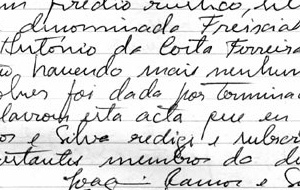 um Prédio rustico, si
denominada Freixia
António da Costa Ferreira
havendo mais nenhum
foi dada por termina
lavrou esta acta que eu
os e Silva redigi e subscr
ortantes membros da d
Joaq Ramos e S